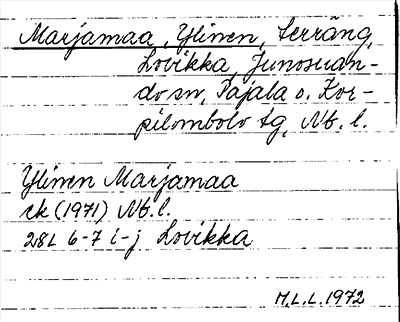 Marjamaa, Ylinen, Terräng,
Lovikka, Junosuan-
do sn, Pajala o. Kor-
pilombolo tg, Nb. l.
Ylinen Marjamaa
ek (1971) Nb. l.
28L 6-7 i-j Lovikka
M.L.L. 1972